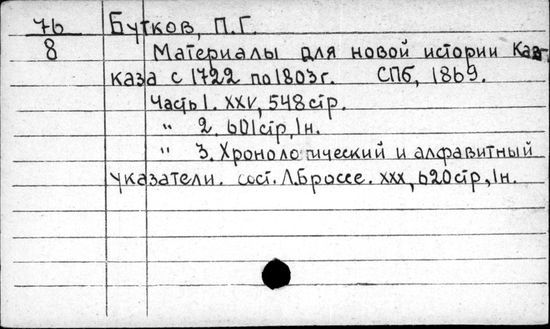 76 Бутков, П.Г.
8 Материалы для новой истории Кав-
каза с 1722 по 1803 г. СПб, 1869.
Часть 1. XXV, 548 стр.
" 2. 601 стр, 1н.
" 3. Хронологический и алфавитный
указатели. сост. Л.Броссе. XXX, 620 стр, 1н.